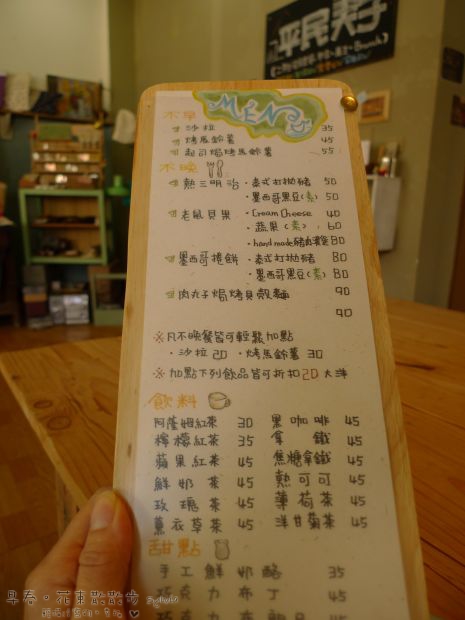 平民夫子
MENU
不早
沙拉 35
烤馬鈴薯 45
起司焗烤馬鈴薯 55
不晚
熱三明治 · 泰式打拋豬 50
· 墨西哥黑豆(素) 50
老鼠貝果 · Cream Cheese 40
· 蔬果(素) 60
· hand made豬肉漢堡 80
墨西哥捲餅 · 泰式打拋豬 80
· 墨西哥黑豆(素) 80
肉丸子焗烤貝殼麵 90
90
※凡不晚餐皆可輕鬆加點
· 沙拉 20 · 烤馬鈴薯 30
※加點下列飲品皆可折扣20大洋
飲料
阿薩姆紅茶 30 黑咖啡 45
檸檬紅茶 35 拿鐵 45
蘋果紅茶 45 焦糖拿鐵 45
鮮奶茶 45 熱可可 45
玫瑰茶 45 薄荷茶 45
薰衣草茶 45 洋甘菊茶 45
甜點
手工鮮奶酪 35
巧克力布丁 45
巧克力 45
早春。花東散散步